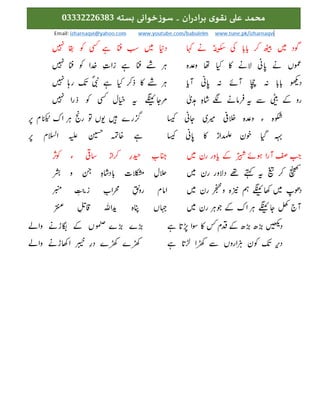 محمد علی نقوی برادران ۔ سوزخوانی بستہ 03332226383
Email: izharnaqvi@yahoo.com www.youtube.com/babulelm www.tune.pk/izharnaqvi
گود میں بیٹھ کر بابا کی سکینہ نے کہا
دنیا میں سب ہے فنا کسی کو بقا نہیں
عموں نے پانی لانے کا کیا تھا وعدہ
ہر شے فنا ہے ذات خدا کو فنا نہیں
دیکھو بابا نہ چچا آئے نہ پانی آیا
ہر شے کا ذکر کیا ہے نبی تک رہا نہیں
رو کے بیٹی سے یہ فرمانے لگے شاہ ہدیٰ
مرجائینگے یہ خیال کسی کو ذرا نہیں
شکوہ ء وعدہ خلافی میری جانی کیسا
گزرے ہیں یوں تو رنج ہر اک خاص و عام پر
بہہ گیا خون علمدار کا پانی کیسا
ہے خاتمہ حسین علیہ السلام پر
جب صف آرا ہوئے شبیر کے یاور رن میں
جناب حیدر کرار ساقیِ ء کوثر
کھینچ کر تیغ یہ کہتے تھے دلاور رن میں
حلال مشکلات بادشاہ جن و بشر
دھوپ میں کھائینگے ہم نیزہ و خنجر رن میں
امام رونق محراب زینت منبر
آج کھل جائینگے ہر اک کے جوہر رن میں
جہاں پناہ یداللہ قاتل عنتر
دیکھیں بڑھ بڑھ کے قدم کس کا سوا پڑتا ہے
بڑے بڑے صفوں کے بگاڑنے والے
دیر تک کون ہزاروں سے کھڑا لڑتا ہے
کھڑے کھڑے در خیبر اکھاڑنے والے